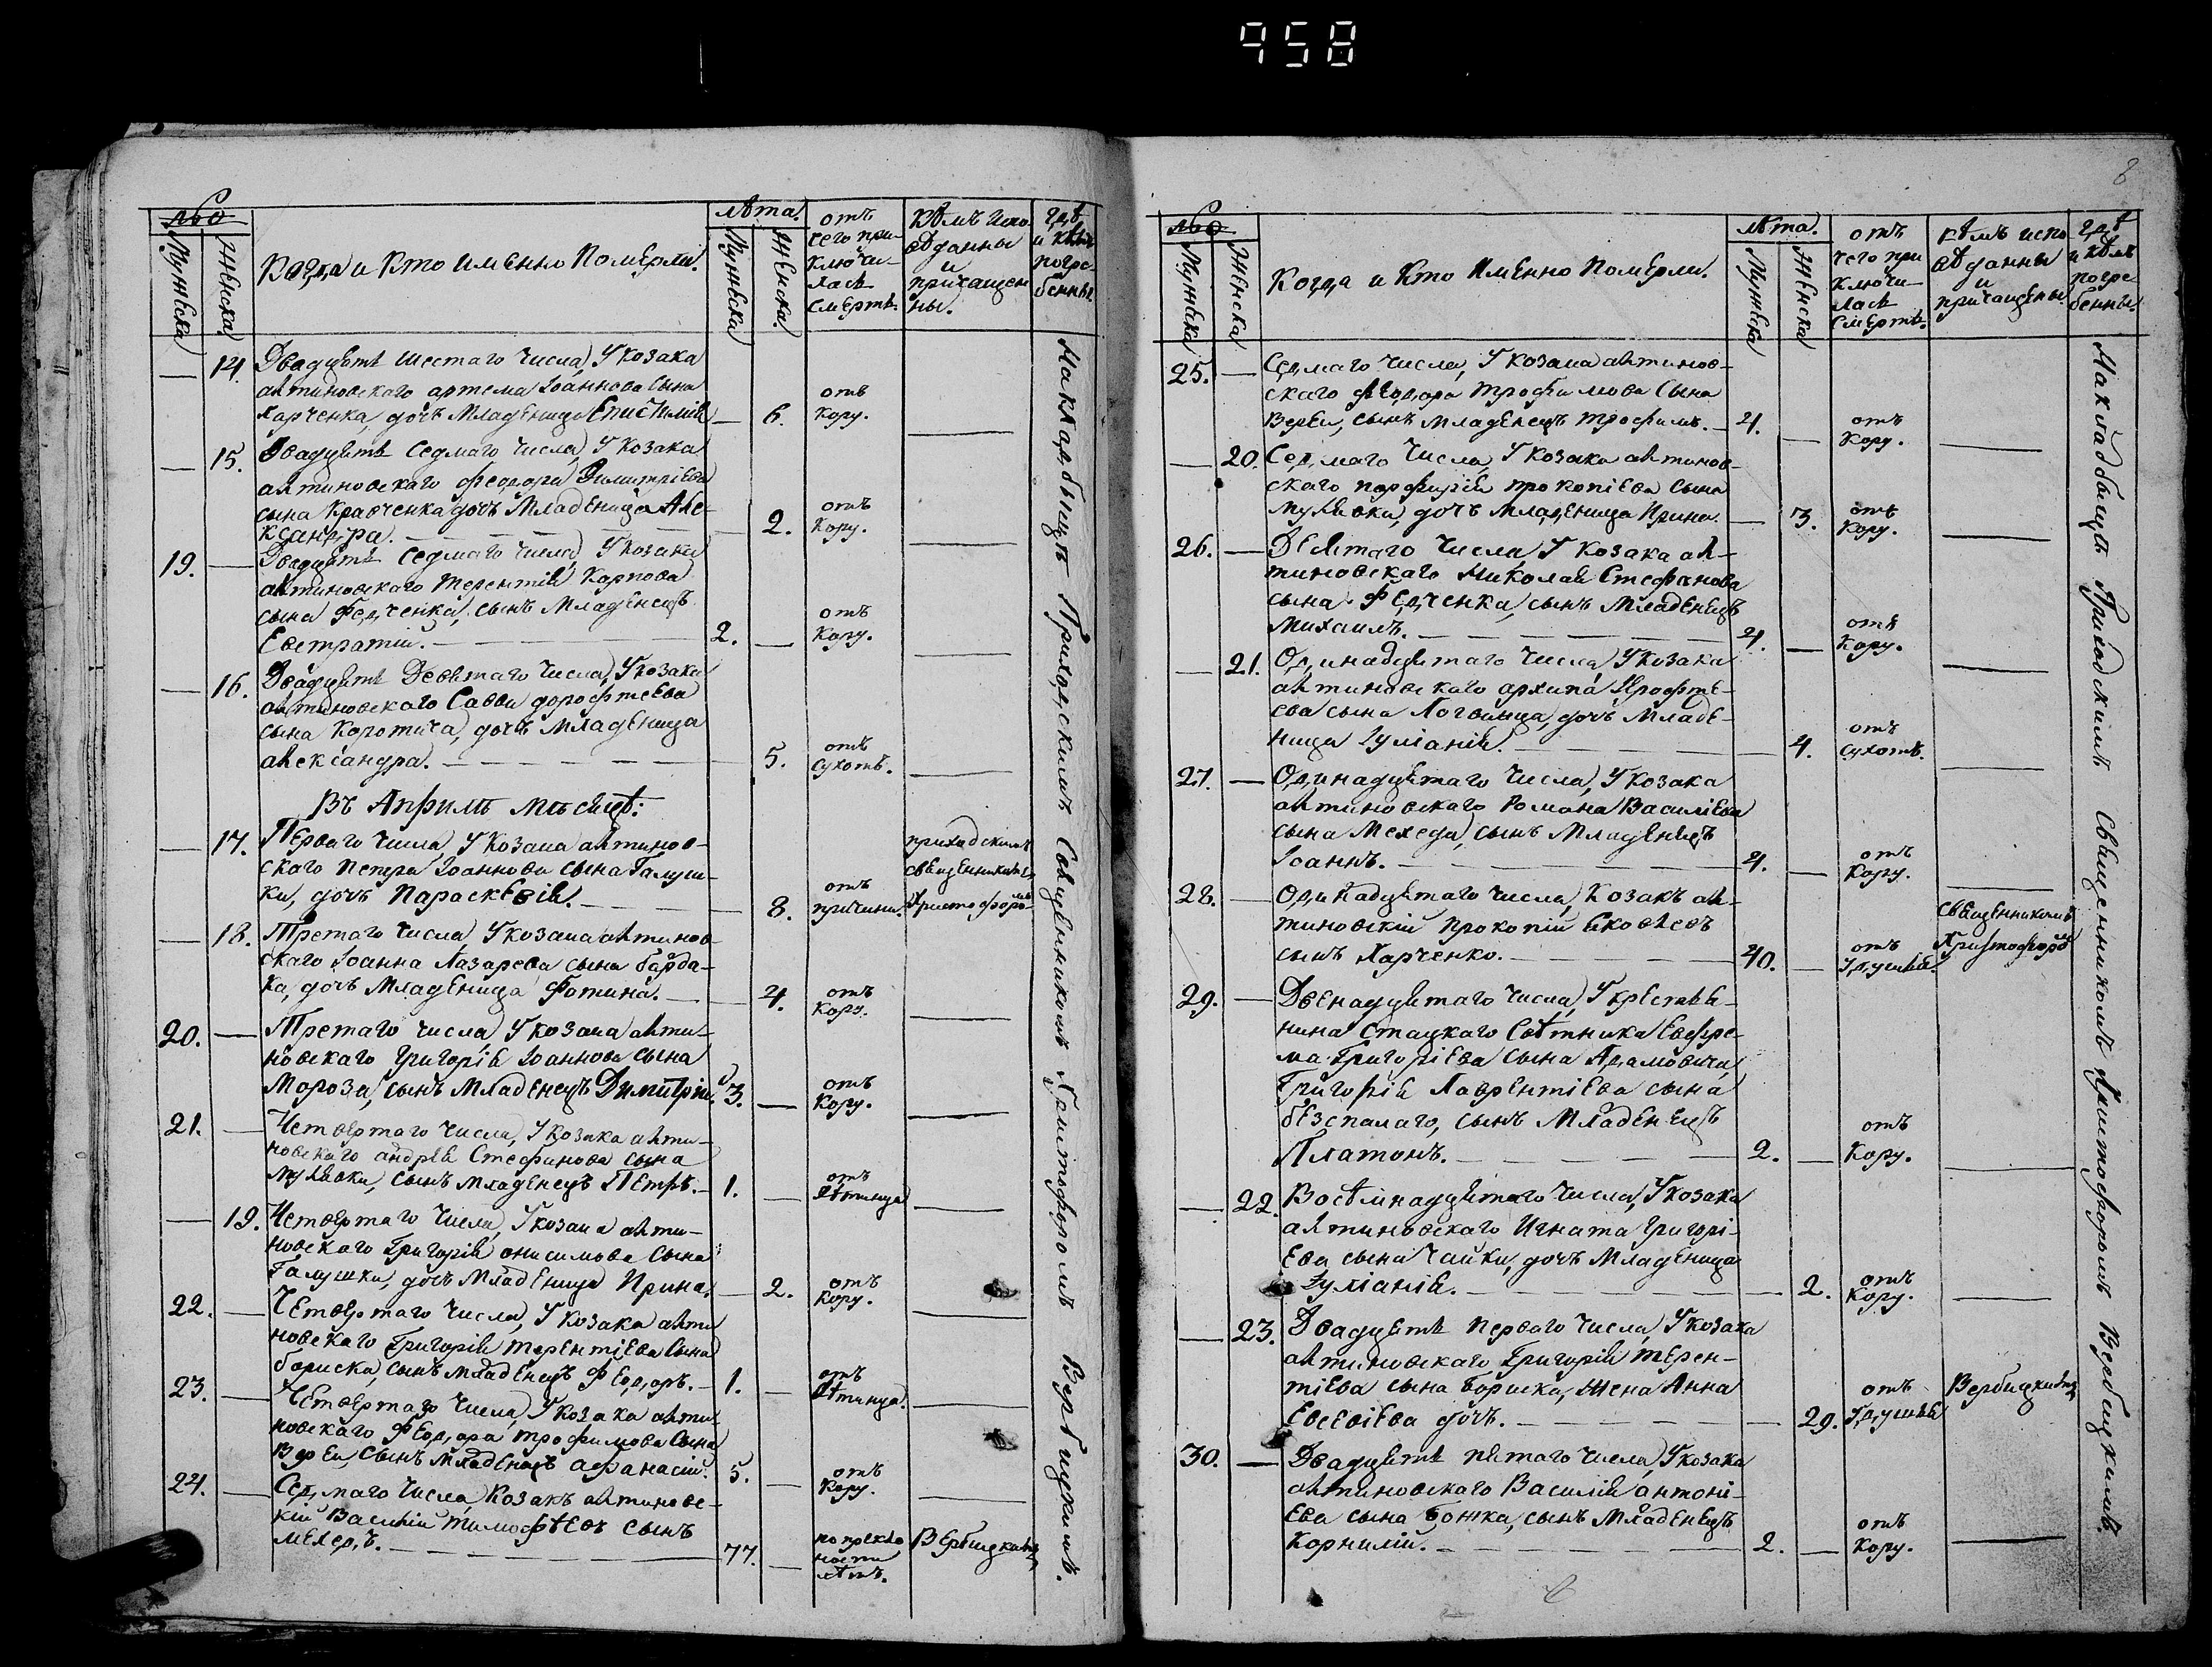 958
8
№
Мужеска
Женска.
Когда и Кто именно Померли.
лѣта.
Мужеска
Женска.
отъ
чего при-
ключи-
лась
смерть.
кѣмъ испо-
вѣданны
и
причащен
ны.
гдѣ
и кѣмъ
погре-
бенны.
14. Двадцять шестаго числа, У козака
яхтиновского артема Іоаннова сына
Харченка, дочь младеница
6.
отъ
кору.
15. Двадцять седмаго числа, У козака
яхтиновского феодора Димитріева
сына Кравченка дочь младеница Але-
ксандра.
2.
отъ
кору.
19. Двадцять седмаго числа, У козака
яхтиновского терентія Карпова
сына Федченка, сынъ младенецъ
Евстратій.
2.
отъ
кору.
16. Двадцять девятаго числа, У козака
яхтиновского Саввы дорофтеева
сына Коротича, дочь младеница
александра.
5.
отъ
сухотъ.
Въ Априлѣ мѣсяцѣ:
17. Перваго числа, У козака яхтинов-
скаго петра Іоаннова сына Галуш-
ки, дочь Параскевія.
8.
отъ
причини.
приходскимъ
священникомъ
Христофоромъ
18. Третаго числа, У козака яхтинов-
скаго Іоанна Лазарева сына барда-
ка, дочь младеница Фотина.
4.
отъ
кору.
20. Третаго числа, У козака яхти-
новскаго григорія Іоаннова сына
Мороза, сынъ младенецъ Димитрій.
3.
отъ
кору.
21. Четвертаго числа, У козака яхти-
новскаго андрея Стефанова сына
мулявки, сынъ младенецъ Петръ.
1.
отъ
19. Четвертаго числа, У козака яхти-
новскаго Григорія онисимова сына
Галушки, дочь младеница Ирина.
2.
отъ
кору.
22. Четвертаго числа, У козака яхти
новскаго Григорія терентіева сына
бориска, сынъ младенецъ Феодоръ.
1.
отъ
23. Четвертаго числа, У козака яхти
новскаго Феодора трофимова сына
Верби, сынъ младенецъ афанасій.
5.
отъ
кору.
24. Седмаго числа, Козакъ яхтиновс-
кій Василій тимофѣевъ сынъ
мехедъ.
77.
Вербицкимъ
На кладбищѣ Приходскимъ Священникомъ Христофоромъ Вербицкимъ.
№
Мужеска
Женска.
Когда и Кто Именно Померли.
лѣта.
Мужеска
Женска
отъ
чего при
ключи-
лась
смерть.
кѣмъ испо
вѣданны
и
причащены
гдѣ
и кѣмъ
погре
бенны.
25. Седмаго числа, У козака яхтинов-
скаго феодора трофимова сына
Верби, сынъ младенецъ трофимъ.
4.
отъ
кору.
20. Седмаго числа, У козака яхтинов-
скаго порфирія прокопіева сына
мулявки, дочь младеница Ирина.
3.
отъ
кору.
26. Десятаго числа, У козака ях-
тиновскаго Николая Стефанова
сына Федченка, сынъ младенецъ
Михаилъ.
4.
отъ
кору.
21. Одинадцятаго числа, У козака
яхтиновскаго архипа Ярофтѣ-
ева сына Логвинца, дочь младе-
ница Іуліанія.
4.
отъ
сухотъ.
27. Одинадцятаго числа, У козака
яхтиновскаго Романа Василіева
сына Мехеда, сынъ младенецъ
Іоаннъ.
4.
отъ
кору.
28. Одинадцятаго числа, Козакъ ях-
тиновскій прокопій яковлевъ
сынъ Харченко.
40.
отъ
удушья.
священникомъ
Христофоромъ
29. Двенадцятаго числа, У крестья-
нина Статского Совѣтника Евфре-
ма Григоріева сына Адамовича,
Григорія Лаврентіева сына
безпалаго, сынъ младенецъ
Платонъ.
2.
отъ
кору.
22. Восемнадцятаго числа, У козака
яхтиновскаго Игната Григорі-
ева сына Чайки, дочь младеница
Іуліанія.
2.
отъ
кору.
23. Двадцять перваго числа, У козака
яхтиновскаго Григорія терен-
тіева сына Бориска, жена Анна
Евсевіева дочь.
29.
отъ
удушья
Вербицкимъ
30. Двадцять пятаго числа, У козака
яхтиновскаго Василія антоні-
ева сына Божка, сынъ младенецъ
Корнилій.
2.
отъ
кору.
На кладбищѣ Приходскимъ Священникомъ Христофоромъ Вербицкимъ.